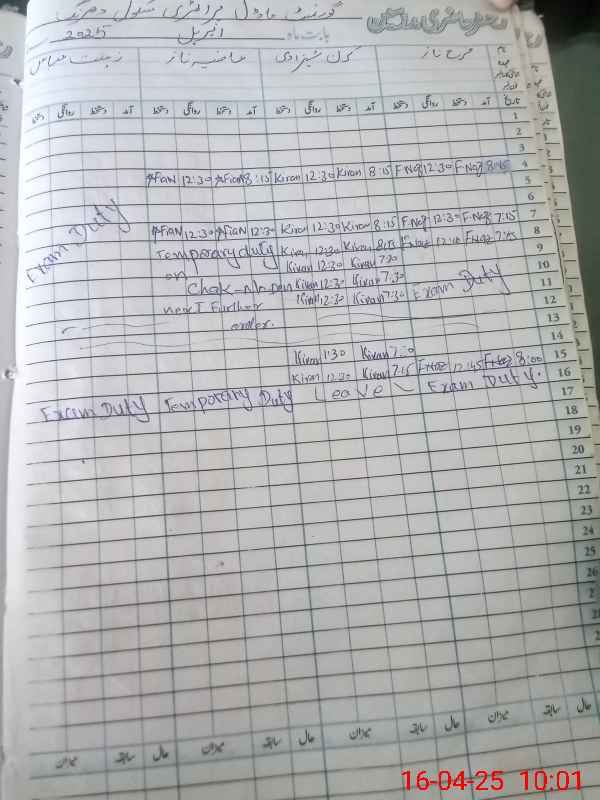 گورنمنٹ ماڈل پرائمری سکول دھرنگ
رجسٹر حاضری مدرسین
بابت ماہ اپریل 2025
فرح ناز کرن شہزادی عافیہ ناز زینت عباس
تاریخ آمد دستخط روانگی دستخط آمد دستخط روانگی دستخط آمد دستخط روانگی دستخط آمد دستخط روانگی دستخط
1
2
3
Afian 12:30 Afian 8:15 Kiran 12:30 Kiran 8:15 F.Naz 12:30 F.Naz 8:15 4
5
6
Exam Duty
Afian 12:30 Afian 12:30 Kiran 12:30 Kiran 8:15 F.Naz 12:30 F.Naz 7:15 7
Temporary duty Kiran 12:30 Kiran 8:15 F.Naz 12:10 F.Naz 7:45 8
on Kiran 12:30 Kiran 7:30 9
Chak Kiran 12:30 Kiran 7:30 Exam Duty 10
next Further Kiran 12:30 Kiran 7:30 11
order. 12
13
14
Kiran 1:30 Kiran 15
Kiran 12:30 Kiran 7:15 F.Naz 12:45 F.Naz 8:00 16
Exam Duty Temporary Duty Leave Exam Duty. 17
18
19
20
21
22
23
24
25
26
2
28
2
حال سابقہ میزان حال سابقہ میزان حال سابقہ میزان حال سابقہ میزان
16-04-25 10:01